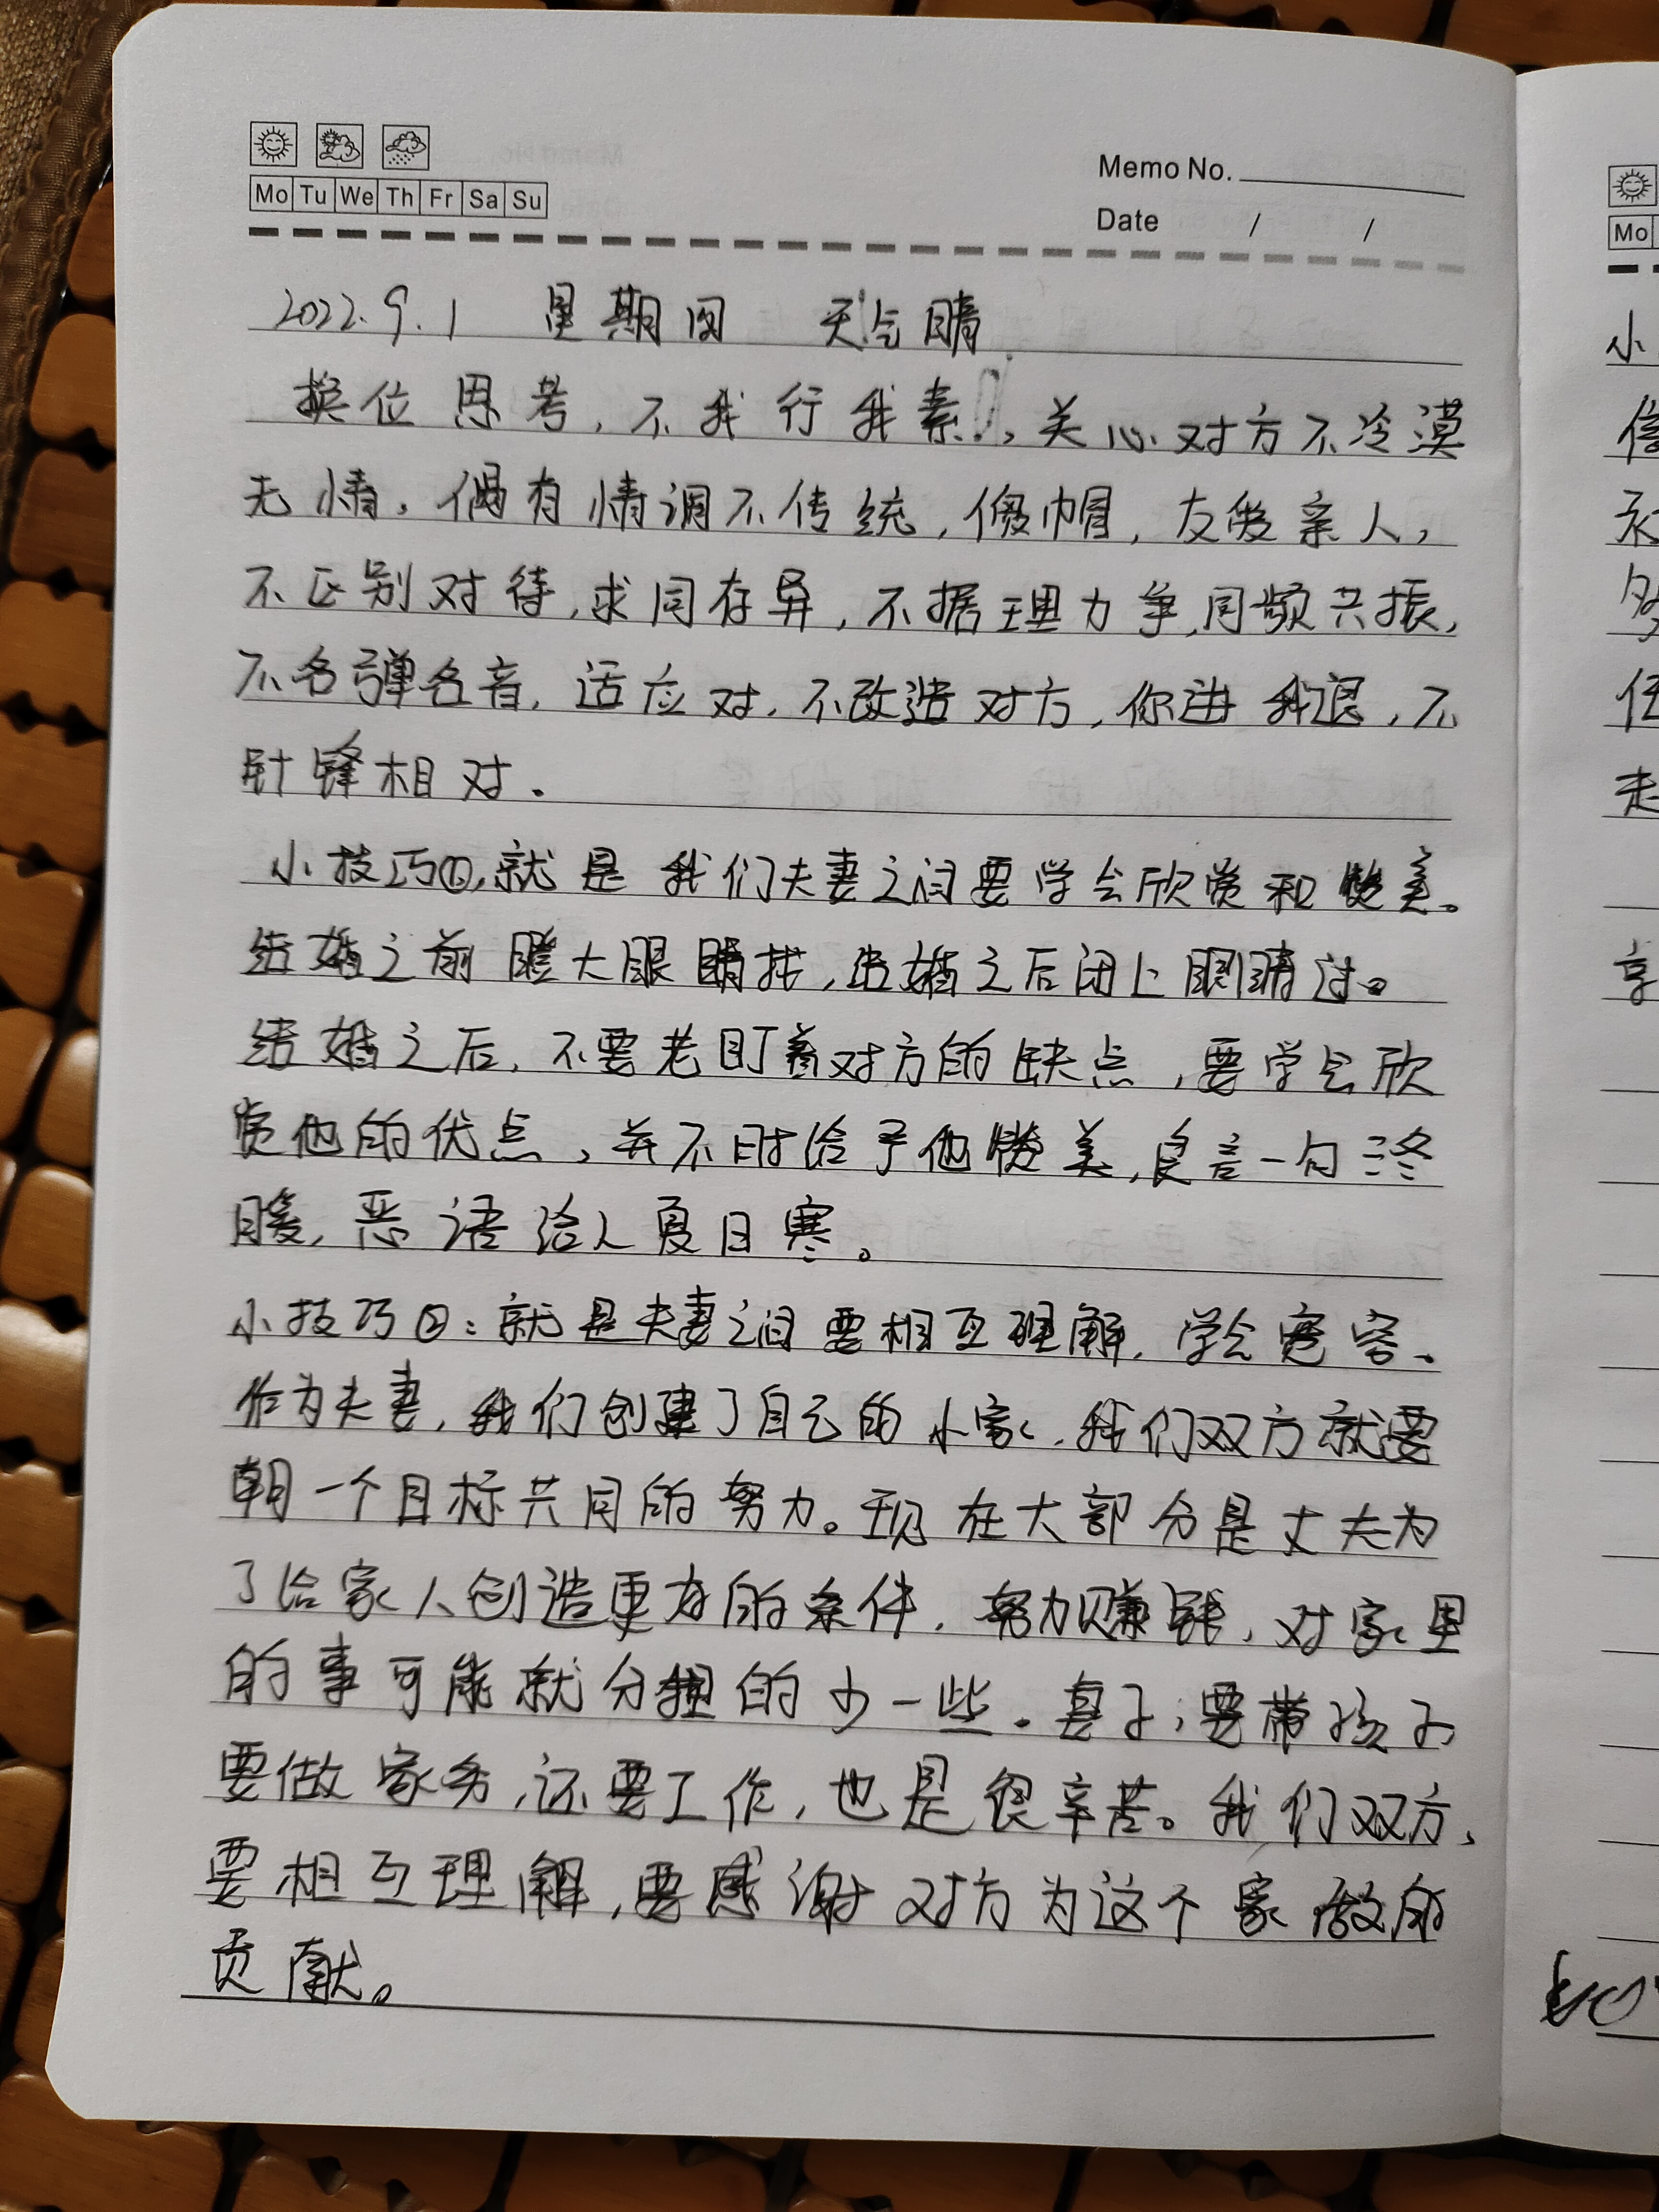 Mo Tu We Th Fr Sa Su
Memo No.
Date / /
2022.9.1 星期四 天气晴
换位思考,不我行我素!,关心对方不冷漠
无情,偶有情调不传统,假帽,友爱亲人,
不区别对待,求同存异,不据理力争,同频共振,
不各弹各音,适应对,不改造对方,你进我退,不
针锋相对.
小技巧①,就是我们夫妻之间要学会欣赏和赞美。
结婚之前瞪大眼睛找,结婚之后闭上眼睛过。
结婚之后,不要老盯着对方的缺点,要学会欣
赏他的优点,并不时给予他赞美,良言一句三冬
暖,恶语给人夏日寒。
小技巧②:就是夫妻之间要相互理解,学会宽容、
作为夫妻,我们创建了自己的小家,我们双方就要
朝一个目标共同的努力。现在大部分是丈夫为
了给家人创造更好的条件,努力赚钱,对家里
的事可能就分担的少一些.妻子,要带孩子
要做家务,还要工作,也是很辛苦。我们双方,
要相互理解,要感谢对方为这个家做的
贡献。
Mo
小
信
永
多
任
走
享